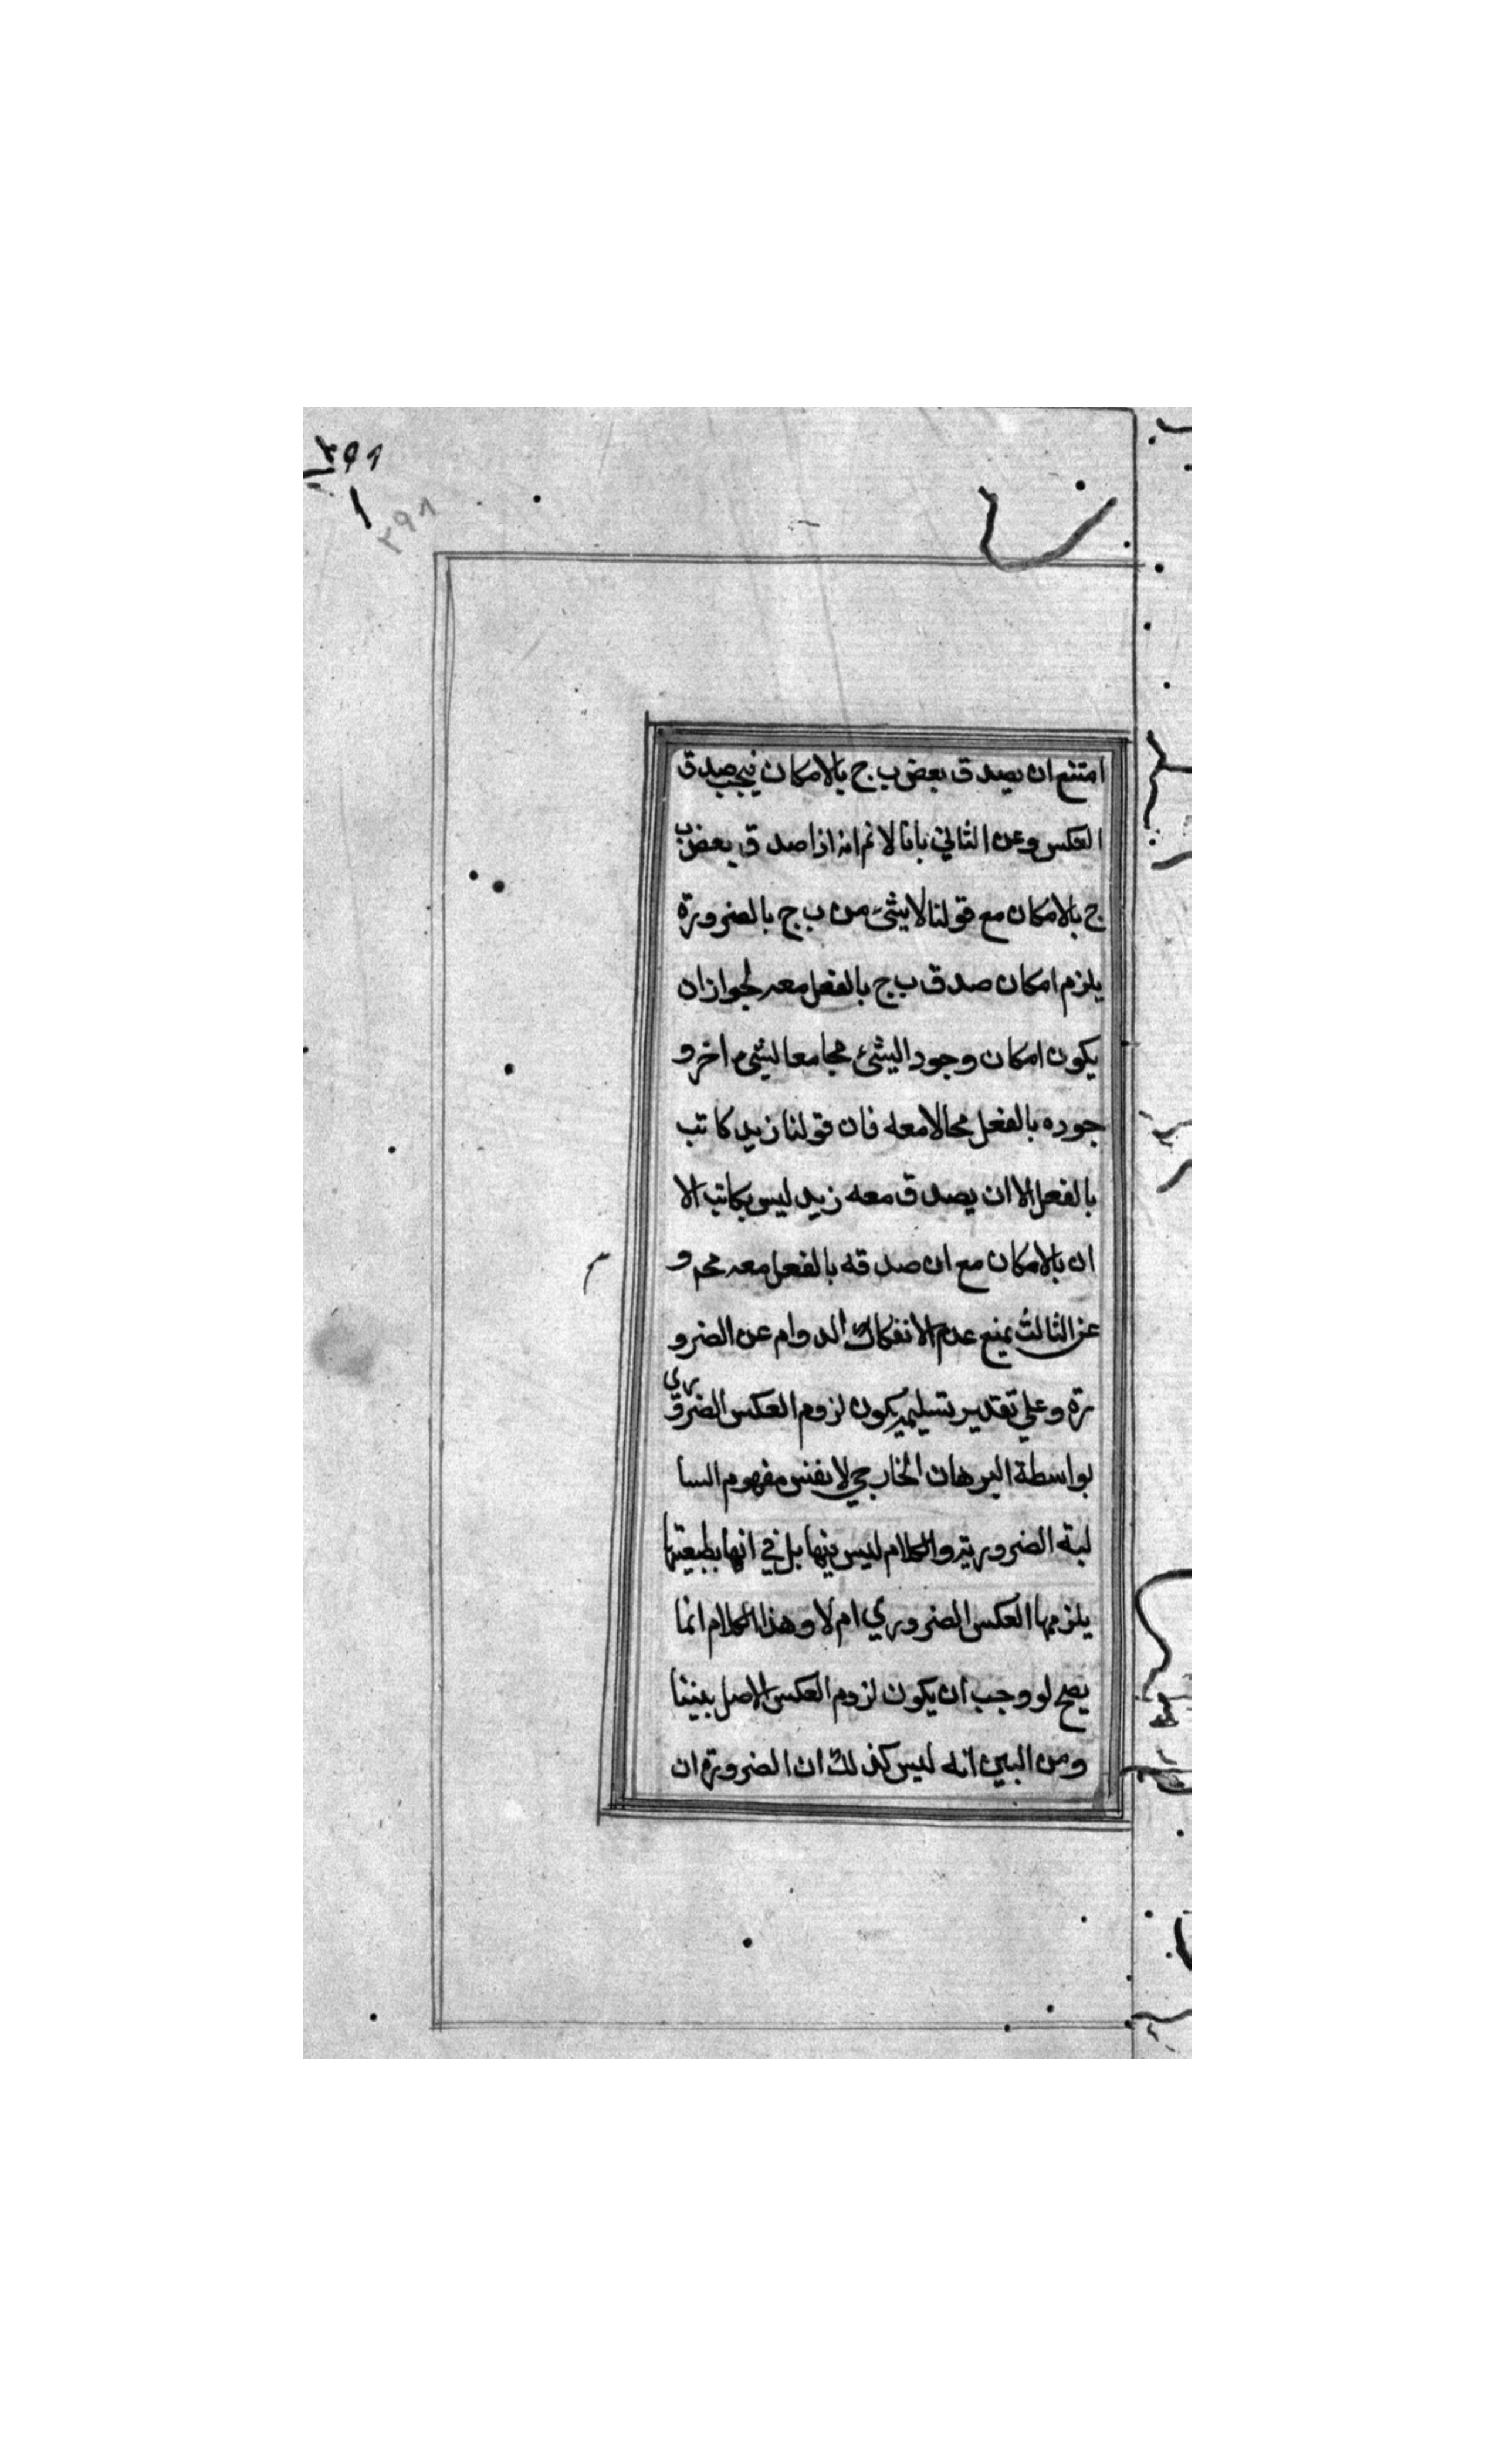 ٣٩٩
٣٩٨
امتنع ان يصدق بعض ب ج بالامكان فيجب صدق
العكس وعن الثاني بانا لا نم انه اذا صدق بعض ب
ج بالامكان مع قولنا لا شئ من ب ج بالضرورة
يلزم امكان صدق ب ج بالفعل معه لجواز ان
يكون امكان وجود الشئ مجامعا لشئ اخر و
جوده بالفعل محالا معه فان قولنا زيد كاتب
بالفعل الاان يصدق معه زيد ليس بكاتب الا
ان بالامكان مع ان صدقه بالفعل معه مح و
عن الثالث بمنع عدم الانفكاك الدوام عن الضرو
رة وعلي تقدير تسليمه يكون لزوم العكس الضروري
بواسطة البرهان الخارجي لا بنفس مفهوم السا
لبة الضرورية والكلام ليس فيها بل في انها بطبيعتها
يلزمها العكس الضروري ام لا وهذا الكلام انما
يصح لو وجب ان يكون لزوم العكس الاصل بيننا
ومن البين انه ليس كذلك ان الضرورة ان